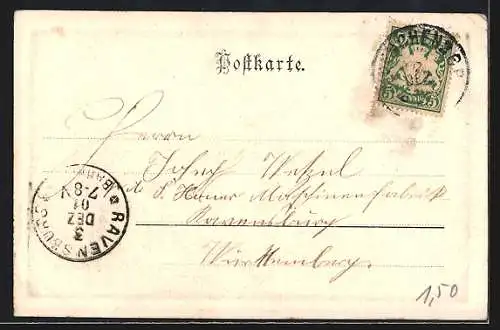 Postkarte.
Herrn
Josef Wetzel
Maschinenfabrik
Ravensburg
Württemberg.
RAVENSBURG
BAHNH
3
DEZ
01
7-8 V
5 5
1,50